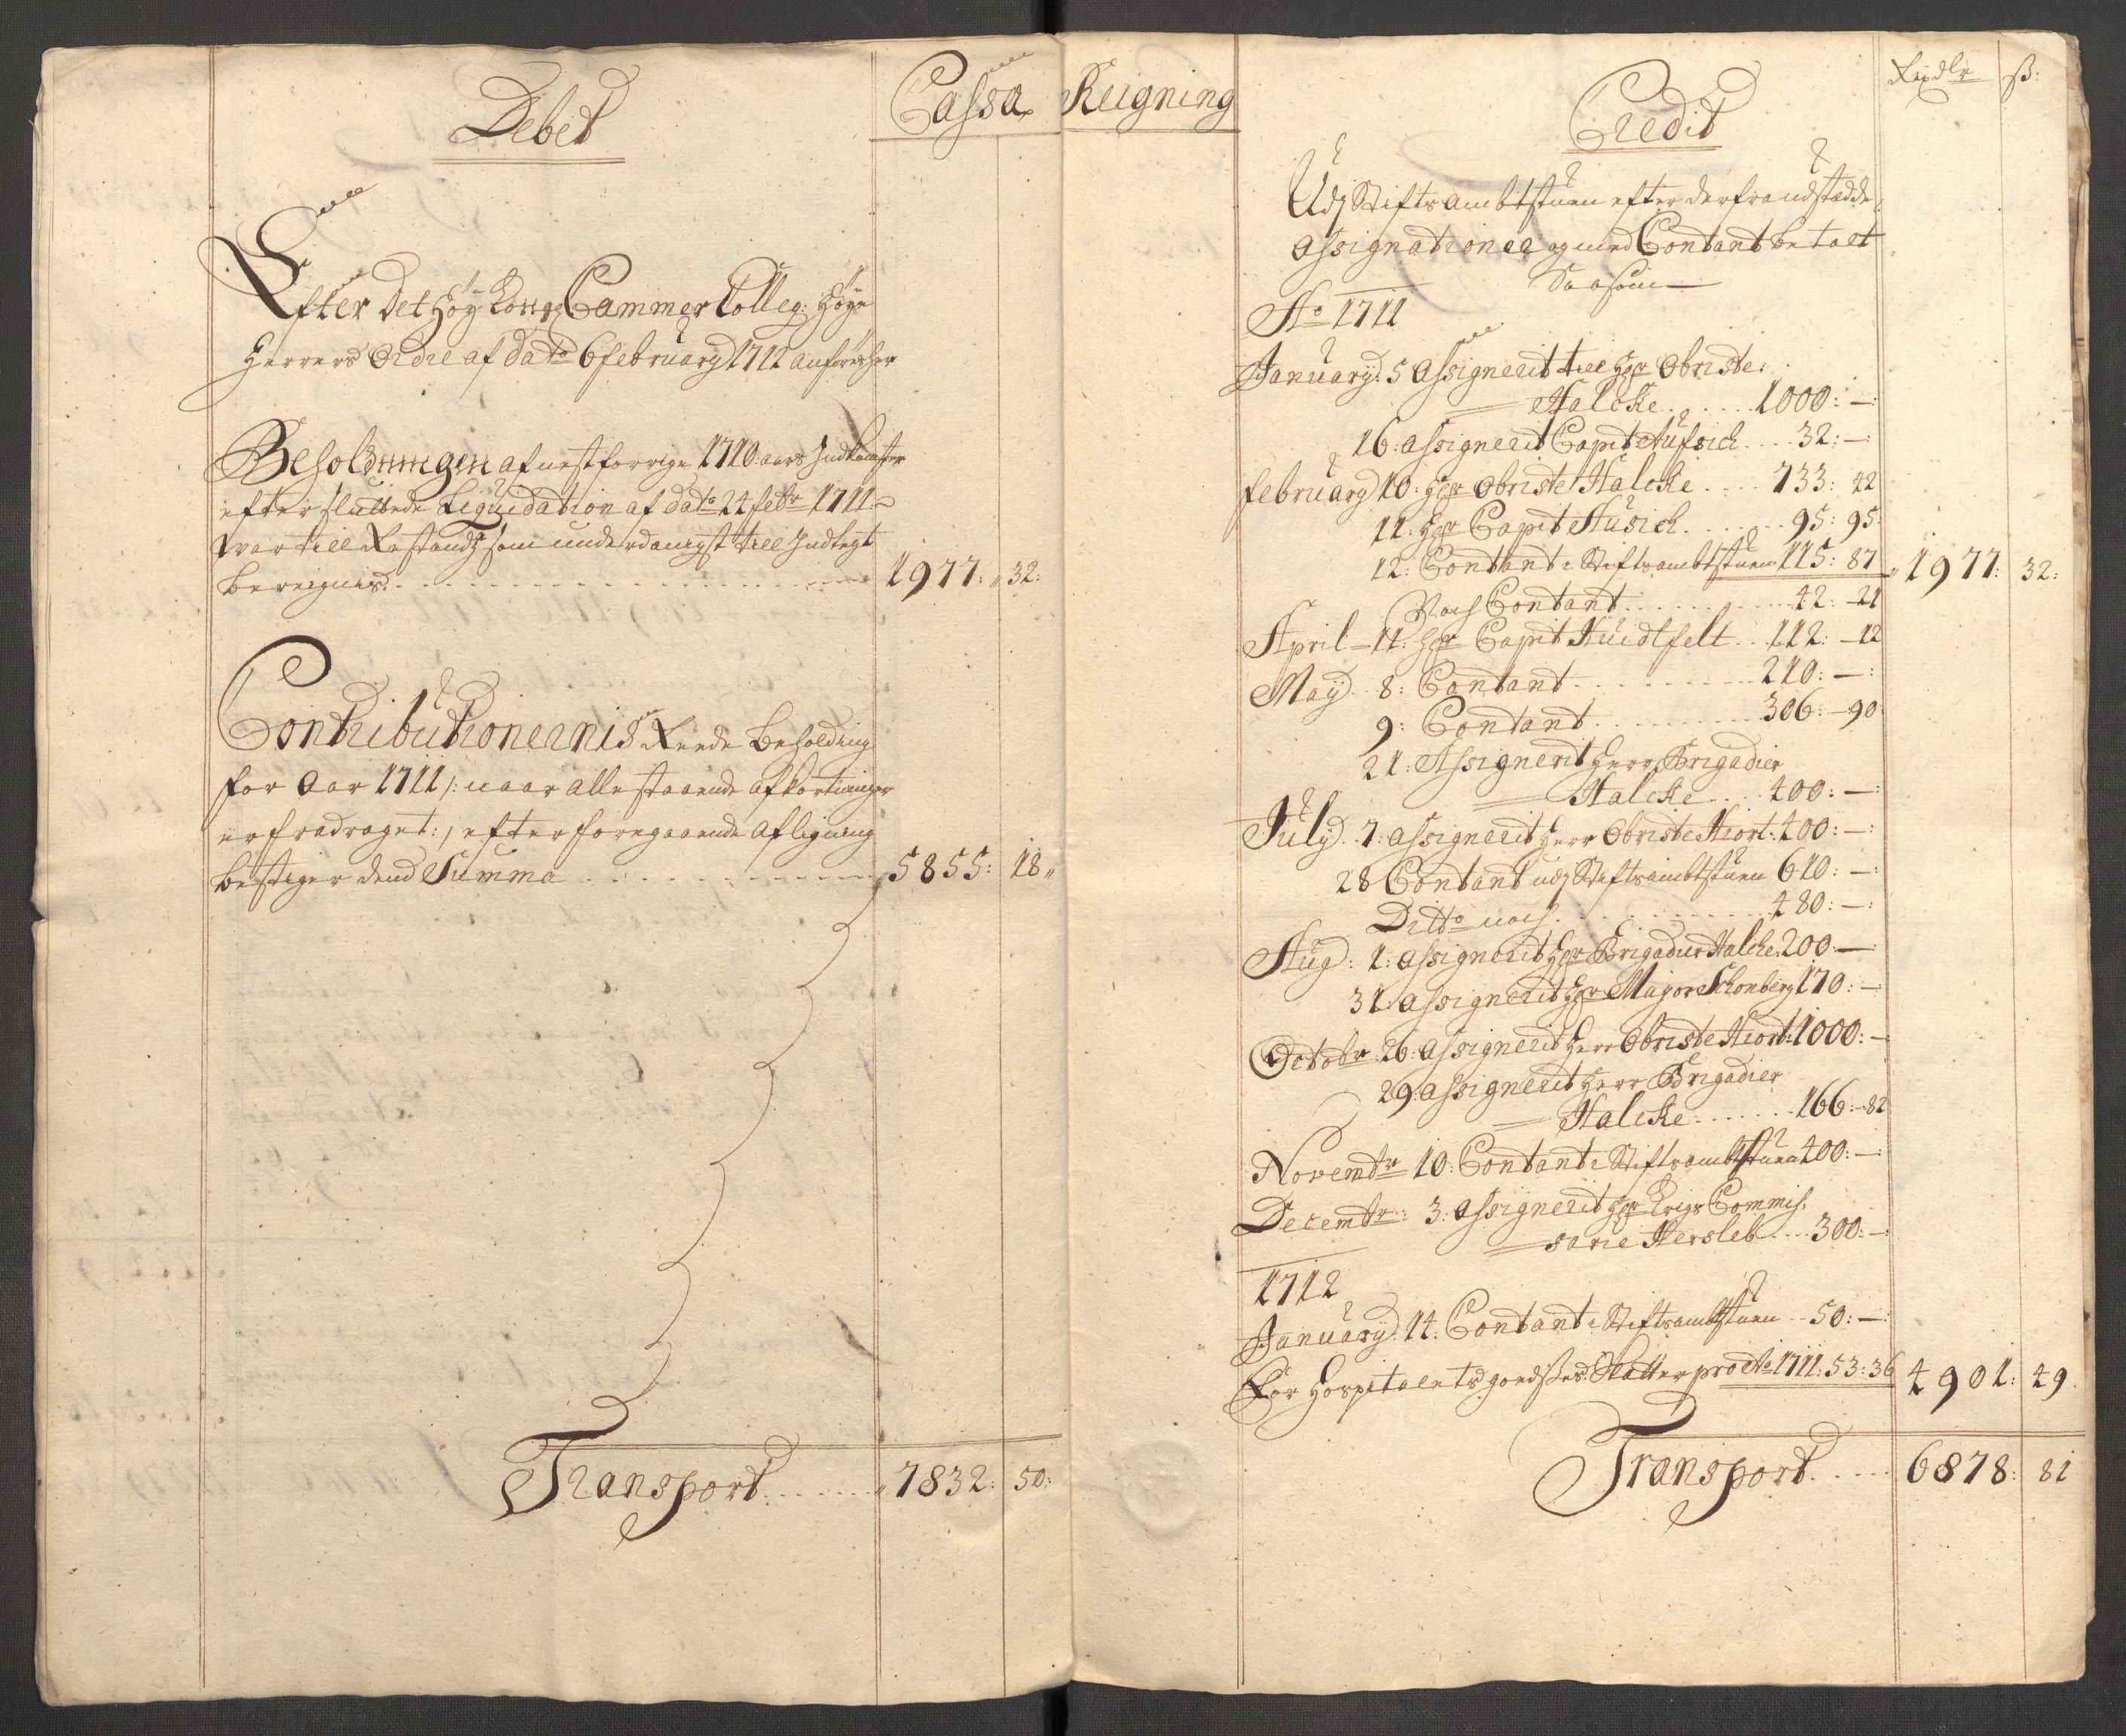 Debet
Cassa
Efter Det Høy Kongl Cammer Colleg: Høye
Herrers Ordre af Dato 6 february 1712 anføres her
Beholdningen af nestforrige 1710 aars Indkomster
efter sluttede Liquidation af dato 24 febr 1711
war till Restands som underdanigst till Indtegt
bereignis 1977: 32:
Contributionernis Reede Beholding
for Aar 1711 /: naar alle staaende afkortninger
er fradraget :/ efter foregaaende afligning
bestiger dend Summa 5855: 18
Transport 7832: 50:
Reigning
Credit
Rixdlr ß:
Udj Stiftsambtstuen efter derfra udstædde
Assignationer og med Contant betalt
Saasom
Ao 1711
January: 5 Assignerit till Hr Obriste
Halcke 1000: —:
16: Assignerit Capit 32: —:
february 10: Hr Obriste Halcke 733: 42
11: Hr Capit 95: 95:
12: Contant i Stiftsambtstuen 115: 87 1977: 32:
Noch Contant 42: 21
April 11: Hr Capit Huidtfelt 112: 12
May 8: Contant 210: —:
9: Contant 306: 90
21: Assignerit Herr Brigadier
Halcke 400: —:
July 7: Assignerit Herr Obriste Hiort: 400: —:
28 Contant udj Stiftsambtstuen 610: —:
Ditto noch 480: —:
Aug: 1: Assignerit Hr Brigadier Halcke 200: —:
31: Assignerit Hr Major Schonberg 170: —
Octobr: 26: Assignerit Herr Obriste Hiort: 1000: —
29: Assignerit Herr Brigadier
Halcke 166: 82
Novembr 10: Contant i Stiftsambtstuen 400: —:
Decembr: 3: Assignerit Hr Krigs Commis-
sarie Hersleb 300: —
1712
January: 14: Contant i Stiftsambtstuen 50: —:
For Hospitalets godses Skatter pro Ao 1711: 53: 36 4901: 49
Transport 6878: 81